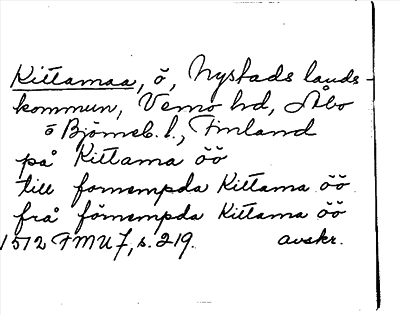 Kittamaa, ö, Nystads lands-
kommun, Vemo hd, Åbo
o Björneb. l., Finland
på Kittama öö
till fornempda Kittama öö
frå förnempda Kittama öö
1512 FMU 7, s. 219. avskr.